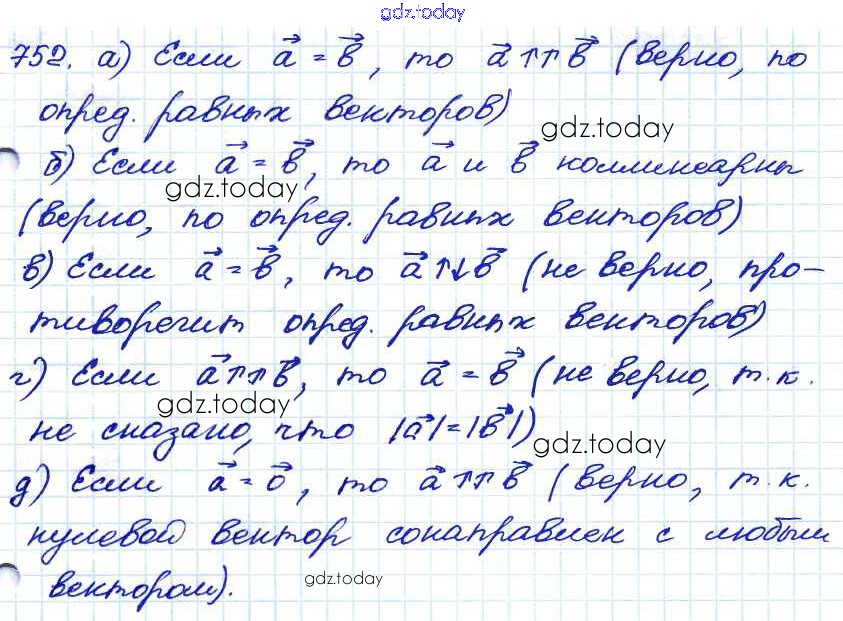 gdz.today
752. а) Если a⃗ = b⃗, то a⃗ ↑↑ b⃗ (верно, по
опред. равных векторов)
gdz.today
б) Если a⃗ = b⃗, то a⃗ и b⃗ коллинеарны
gdz.today
(верно, по опред. равных векторов)
в) Если a⃗ = b⃗, то a⃗ ↑↓ b⃗ (не верно, про-
тиворечит опред. равных векторов)
г) Если a⃗ ↑↑ b⃗, то a⃗ = b⃗ (не верно, т.к.
gdz.today
не сказано, что |a⃗| = |b⃗|)
gdz.today
д) Если a⃗ = 0⃗, то a⃗ ↑↑ b⃗ (верно, т.к.
нулевой вектор сонаправлен с любым
вектором).
gdz.today